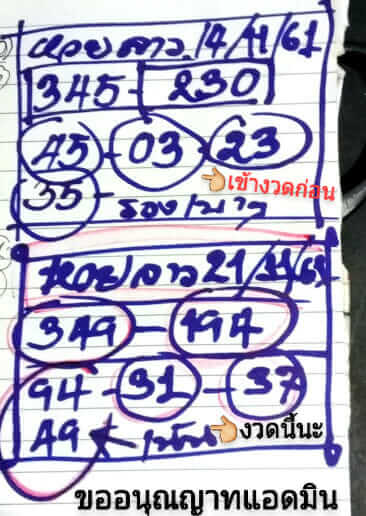 หวยลาว 14/11/61
345 - 230
45 - 03 - 23
👈เข้างวดก่อน
35 - รองเบาๆ
หวยลาว 21/11/61
349 - 194
94 - 31 - 37
49 ← เน้น 👈งวดนี้นะ
ขออนุณญาทแอดมิน